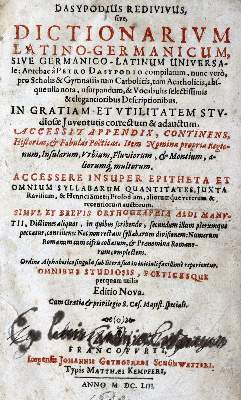 DASYPODIUS REDIVIVUS,
sive,
DICTIONARIUM
LATINO-GERMANICUM,
SIVE GERMANICO-LATINUM UNIVERSA-
le; Antehac à PETRO DASYPODIO compilatum, nunc verò,
pro Scholis & Gymnasiis tam Catholicis, quàm Acatholicis, abs-
que ulla nota, usurpandum, & Vocabulis selectissimis
& elegantioribus Descriptionibus.
IN GRATIAM ET UTILITATEM STU-
diosæ Juventutis correctum & adauctum.
ACCESSIT APPENDIX, CONTINENS,
Historias, & Fabulas Poëticas. Item Nomina propria Regio-
num, Insularum, Urbium, Fluviorum, & Montium, a-
liorumq; multarum.
ACCESSERE INSUPER EPITHETA ET
OMNIUM SYLLABARUM QUANTITATES, JUXTA
Ravilium, & Henrici Smetii Prosodiam, aliorumque veterum &
recentiorum auctorum.
SIMUL ET BREVIS ORTHOGRAPHIA ALDI MANU-
TII, Dictiones aliquot, in quibus scribendis, secundùm illum plerumque
peccatur, continens: Nec non rectam syllabarum divisionem: Numerum
Romanum cum cifris collatum, & Prænomina Romano-
rum complectens.
Ordine Alphabetico singula sub literis suis initialibus facilimè reperientur.
OMNIBUS STUDIOSIS, POETICESQUE
perquam utilis
Editio Nova.
Cum Gratia & privilegio S. Cæs. Majest. speciali.
FRANCOFURTI,
Impensis JOHANNIS GOTHOFREDI SCHÖNWETTERI.
Typis MATTHÆI KEMPFERI,
ANNO M DC. LIII.